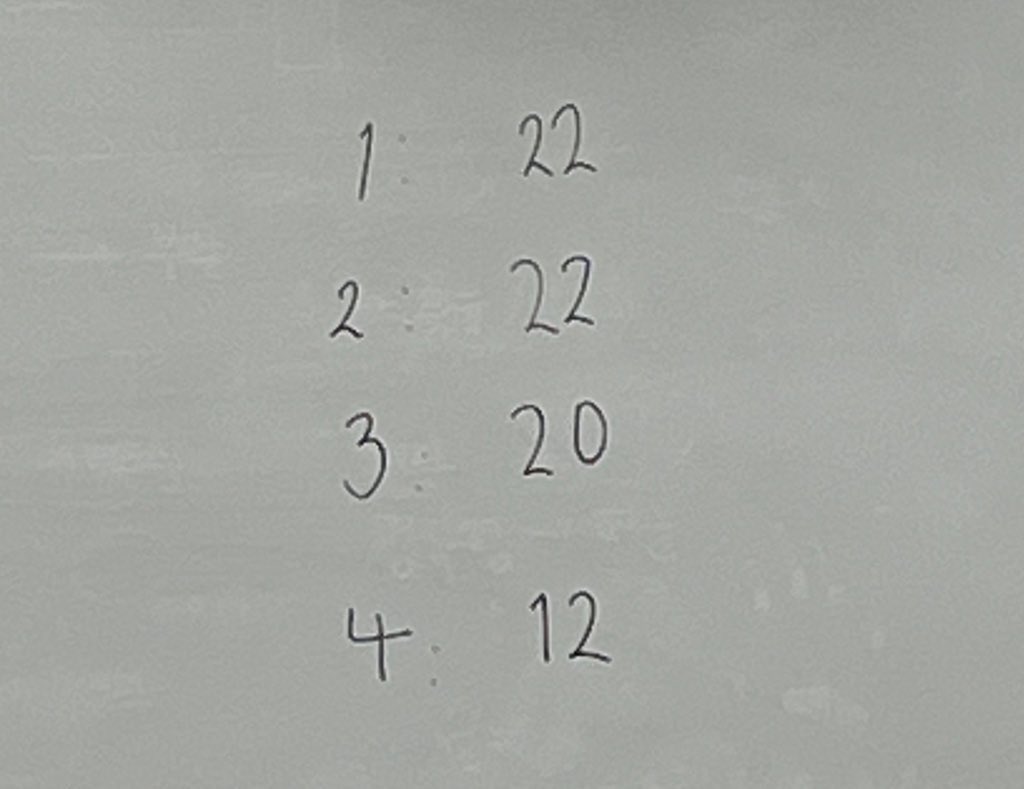 1: 22
2: 22
3: 20
4: 12